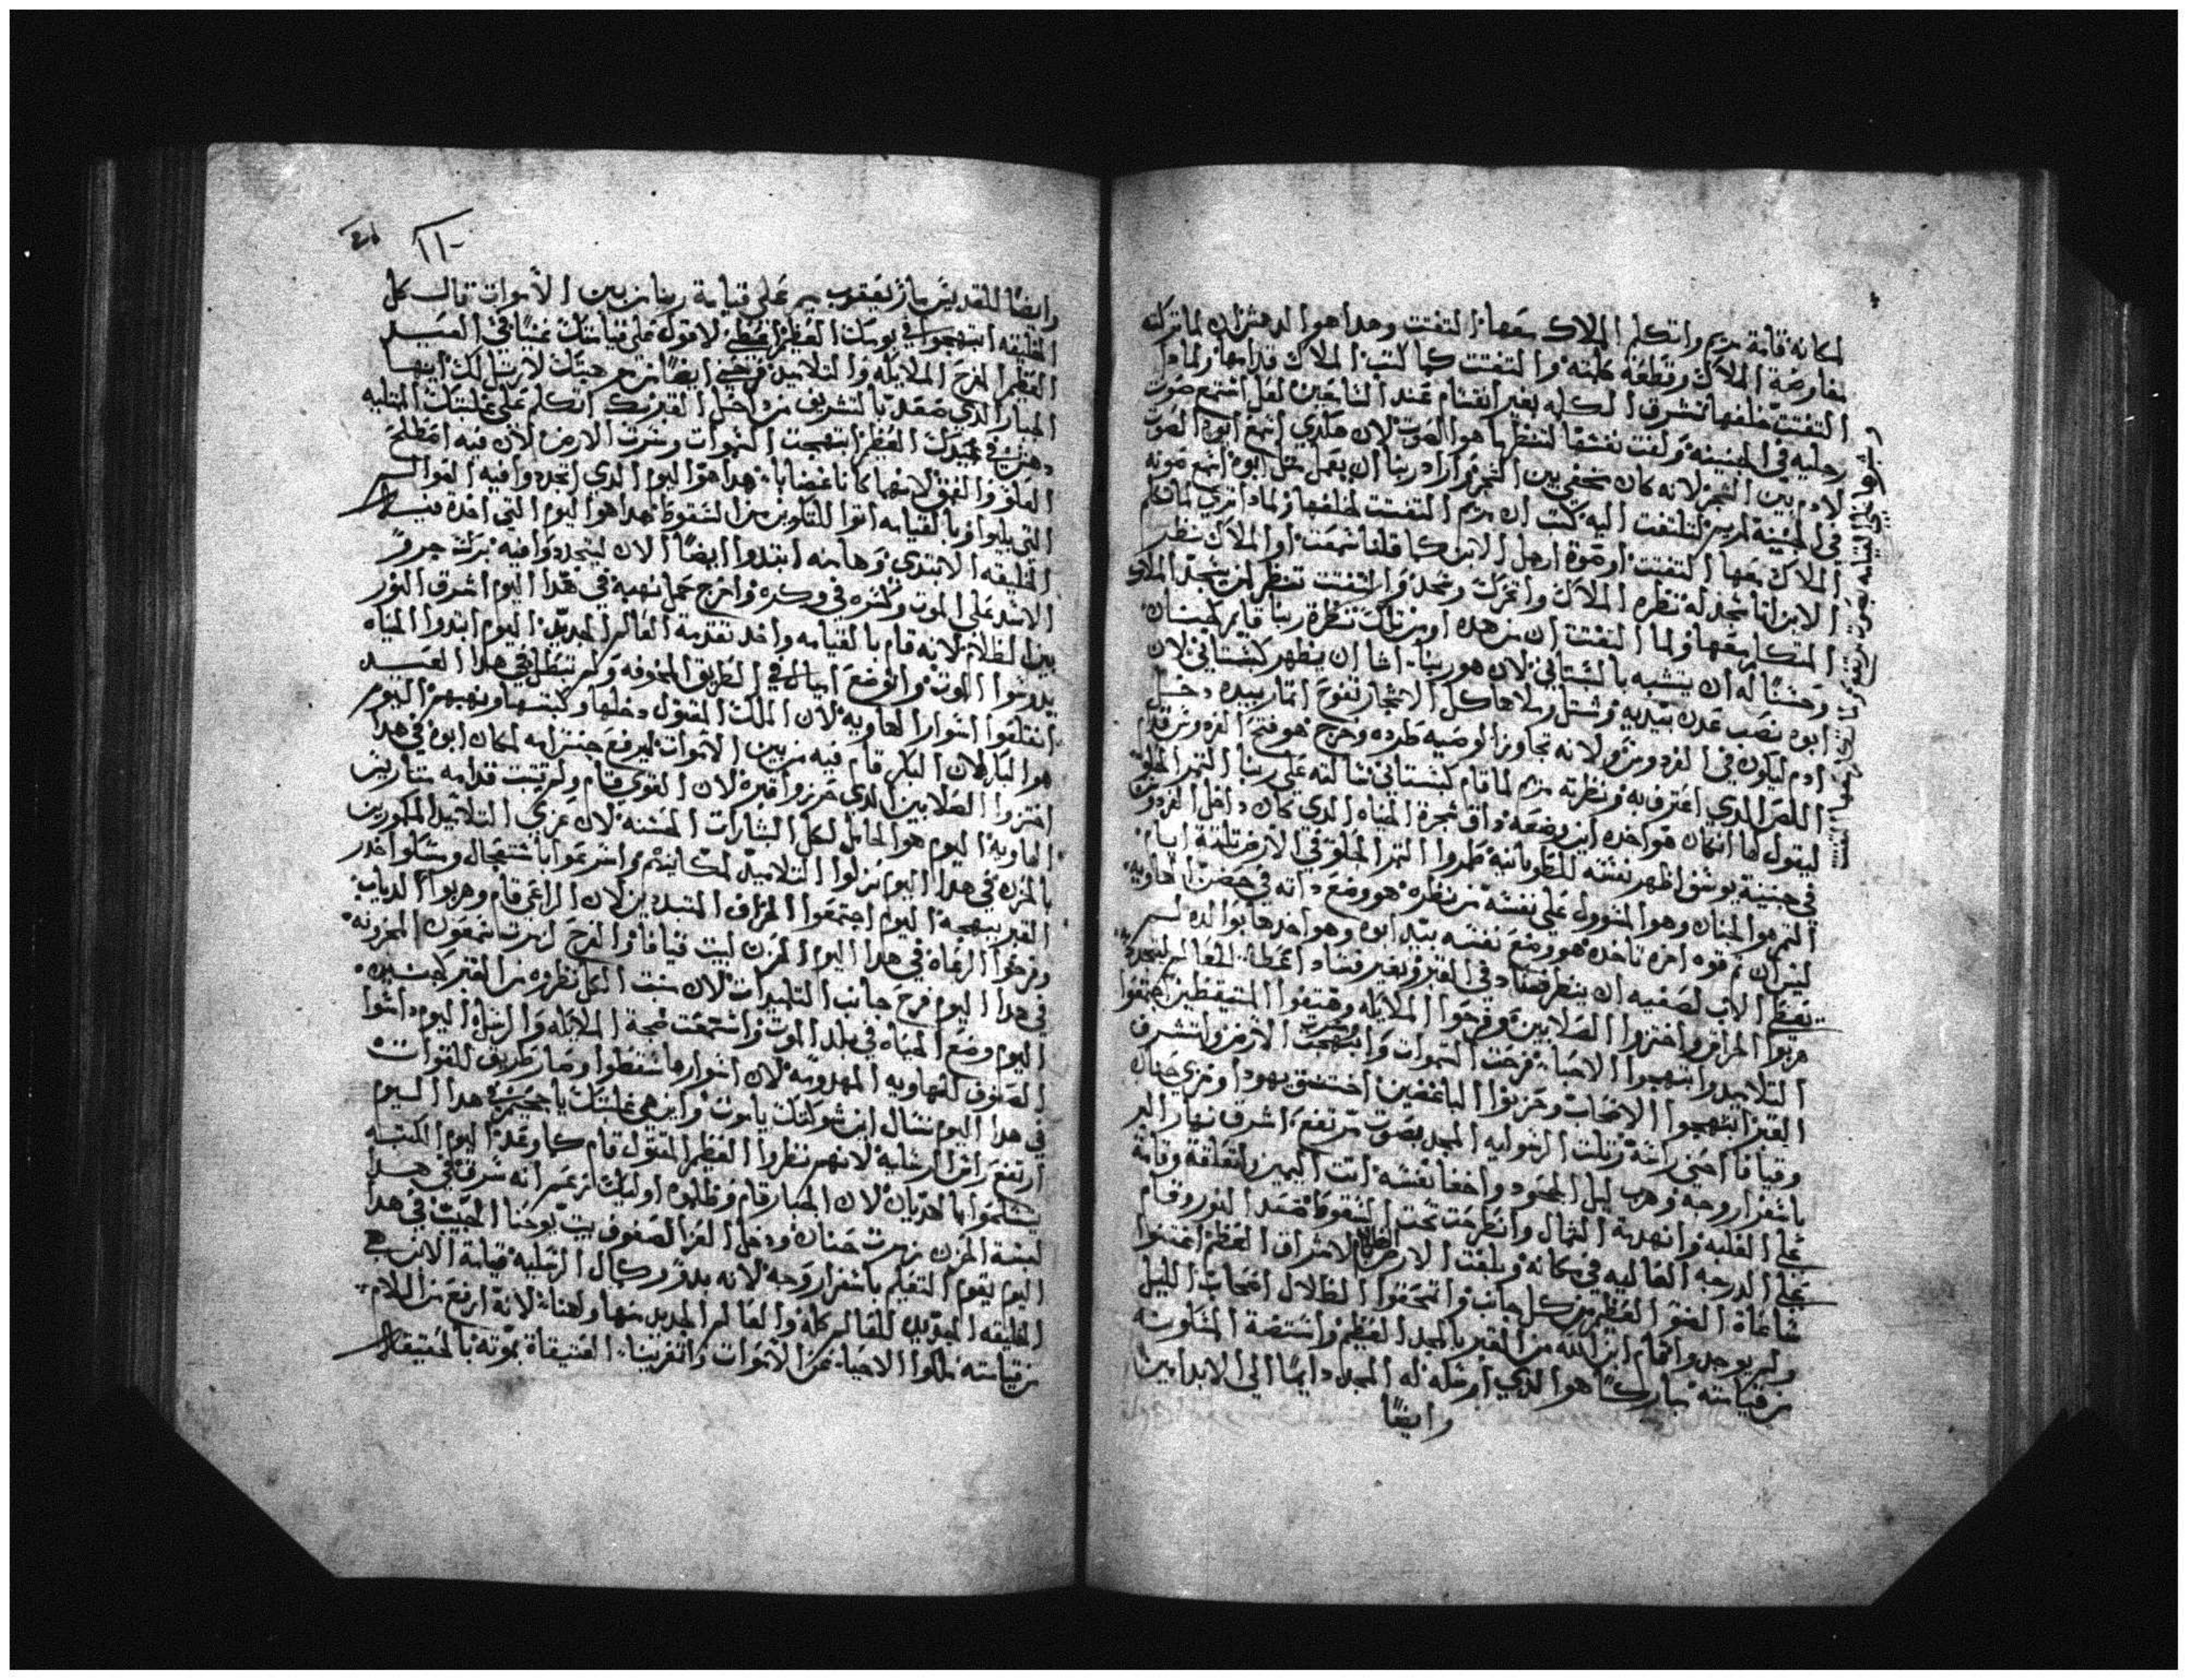 لمكانه قامة مريم واتكلم الملاك معها التفتت وهدا هو الدهش ان لما تركته
مفاوضة الملاك وقطعة كلمته والتفتت كما كتب الملاك قدامها ولمادا
التفتت خلفها تشرق الكلمه بغير انقسام عند السامعين لعل استمع صوت
رجليه في الجنينه ولفت نفسها لتنظر ما هو الصوت لان هكدي اسمع ابوه الصوت
لادم بين الشجر لانه كان مخفي بين الشجر واراد ربنا ان يعمل مثل ابوه اسمع صوته
في الجنينة لمريم لتلتفت اليه كتب ان مريم التفتت لخلفها ولمادا تري لما تكلم
الملاك معها التفتت او صوة ارجل الابن كما قلنا سمعت او الملاك نظر
الابن اتا سجد له نظره الملاك واتحرك وسجد والتفتت تنظر لمن يسجد الملاك
المتكلم معها ولما التفتت ان من هده او من تلك نظرة ربنا قايم كجنان
وحسنًا له ان يتشبه بالبستاني لان هو ربنا اشا ان يظهر كبستاني لان
ابوه نصب عدن بيديه وشتل وملاها كل الاشجار تفوح اتمار بيده دخل
ادم ليكون في الفردوس ولانه تجاوز الوصيه طرده وخرج هو فتح الفردوس قدام
اللص الدي اعترف به ونظرته مريم لما قام كبستاني سالته علي ربنا التمر الحلو
ليقول لها انكان هو اخده اين وضعه واق شجرة الحياه الدي كان داخل الفردوس
في جنينة يوسف اظهر نفسه للطوبانيه طمروا التمر الحلو في الارض تلتة ايام
التمر هو الجنان وهو المسوول علي نفسه من نظره هو وضع داته في حصن الهاويه
ليس ان تم قوه اخره تاخده هو وضع نفسه بيد ابوه وهو اخدها بوالده لسر
يعطي الاب لصفيه ان ينظر فساد في القبر وبغير فساد اعطاه للعالم ليتجدد
هربوا الحراس واختزوا الصلابين وفرحوا الملايكه وهتفوا المتيقظين اجتمعوا
التلاميد وابتهجوا الاحبا فرحت السموات وابتهجت الارض وانتشرف
القبر ابتهجوا الاصحاب وحزنوا الباغضين اختنق يهودا وخزي حنان
وقيافا احني راسه وتلت الرسوليه المجد بصوت مرتفع اشرق نهار البر
باسفرار وجه وهرب ليل الجحود واخفا نفسه اتت اليمين واتعلقة وقامة
علي الغلبه وانهدمة الشمال وانطرحت تحت السقوط صعد النور وقام
علي الدرجه العاليه في مكانه وبلعت الارض الظلام لاشراق العظم اغتموا
شاعاة الضو العظيم من كل جانب واتمحقوا الظلال اصحاب الليل
ولم يوجد واقام ابن الله من القبر بالمجد العظيم واستضة المسكونه
من قيامته مباركًا هو الدي ارسله له المجد دايمًا الي الابد امين
وايضًا
وايضًا للقديس مار يعقوب ميمر علي قيامة ربنا من بين الاموات قال كل
الخليقه ابتهجوا في يومك العظيم اعطي لاقول علي قيامتك عنيًا في العيد
العظيم المفرح الملايكه والتلاميد فرحني ايضًا من مرحمتك لارتل لك ايها
الجبار الدي صعد بالتشريف من داخل القبر بك اتكلم علي غلبتك الخليقه
دهش في عيدك العظيم ابتهجت السموات وسرت الارض لان فيه اصطلح
العلو والعمق لانهما كانا غضابا هدا هو اليوم الدي اتجددوا فيه العوالم
التي بليوا وبالقيامه اتوا للتكوين من السقوط هدا هو اليوم التي اخدة فيه
الخليقه الابتدي وها منه ابتدوا ايضًا الان ليتجددوا فيه برك جرو
الاسد علي الموت وكسره في وكره واخرج حمل نهبه في هدا اليوم اشرق النور
بين الظلام لانه قام بالقيامه واخد تقدمة العالم الجديد اليوم ابتدوا الحياه
يدوسوا الموت واتوضع اميال في الطريق المخوفه ولم تبطل في هدا العيد
انقلعوا اسوار الهاويه لان الملك المقتول دخلها وكبسها ونهبها اليوم
هو البار لان البكر قام فيه من بين الاموات ليرفع جنس امه لمكان ابوه في هدا
اختزوا الصلابين الدي حرزوا قبره لان القوي قام ولم تتبت قدامه متاريس
الهاويه اليوم هو الحامل لكل البشارات الحسنه لان عزي التلاميد المكدورين
بالحزن في هدا اليوم نزلوا التلاميد لمكانهم واسرعوا باستعجال ومسكوا خدر
القبر ببهجه اليوم اجتمعوا الخراف المتبددين لان الراعي قام وهربوا الدياب
وفرحوا الرعاه في هدا اليوم الحزن لبيت قيافا والفرح لبيت سمعون المحزونه
في هدا اليوم فرح جانب التلميدات لان سبت الكل نظروه من القبر كجنبده
اليوم وضع الحياه في بلد الموت واستمعت ضجة الملايكه والرسل اليوم داسوا
الصفوف للهاويه المهدومه لان اسوارها سقطوا وصار طريق للقوات
في هدا اليوم نسال اين شوكتك يا موت واين هي غلبتك يا جحيم هدا اليوم
ارتفع راس الرسليه لانهم نظروا العظيم المقتول قام كما وعد اليوم المكتبه
يتكلموا بالهديان لان الجبار قام وظلموه اوليك انه سرق في هدا
لبسة الحزن مزمرت حنان ودخل العز الصفوف بيت يوحنا الحبيب في هدا
اليوم يقوم التعليم باسفرار وجه لانه بدو وكمال الرسليه قيامة الابن هي
الخليقه الجديده للعالم كله والعالم الجديد منها ولهنا لانه ارتفع من الالام
من قيامته ملكوا الاحيا عن الاموات واتغربنا العتيقاة بموته بالحقيقه